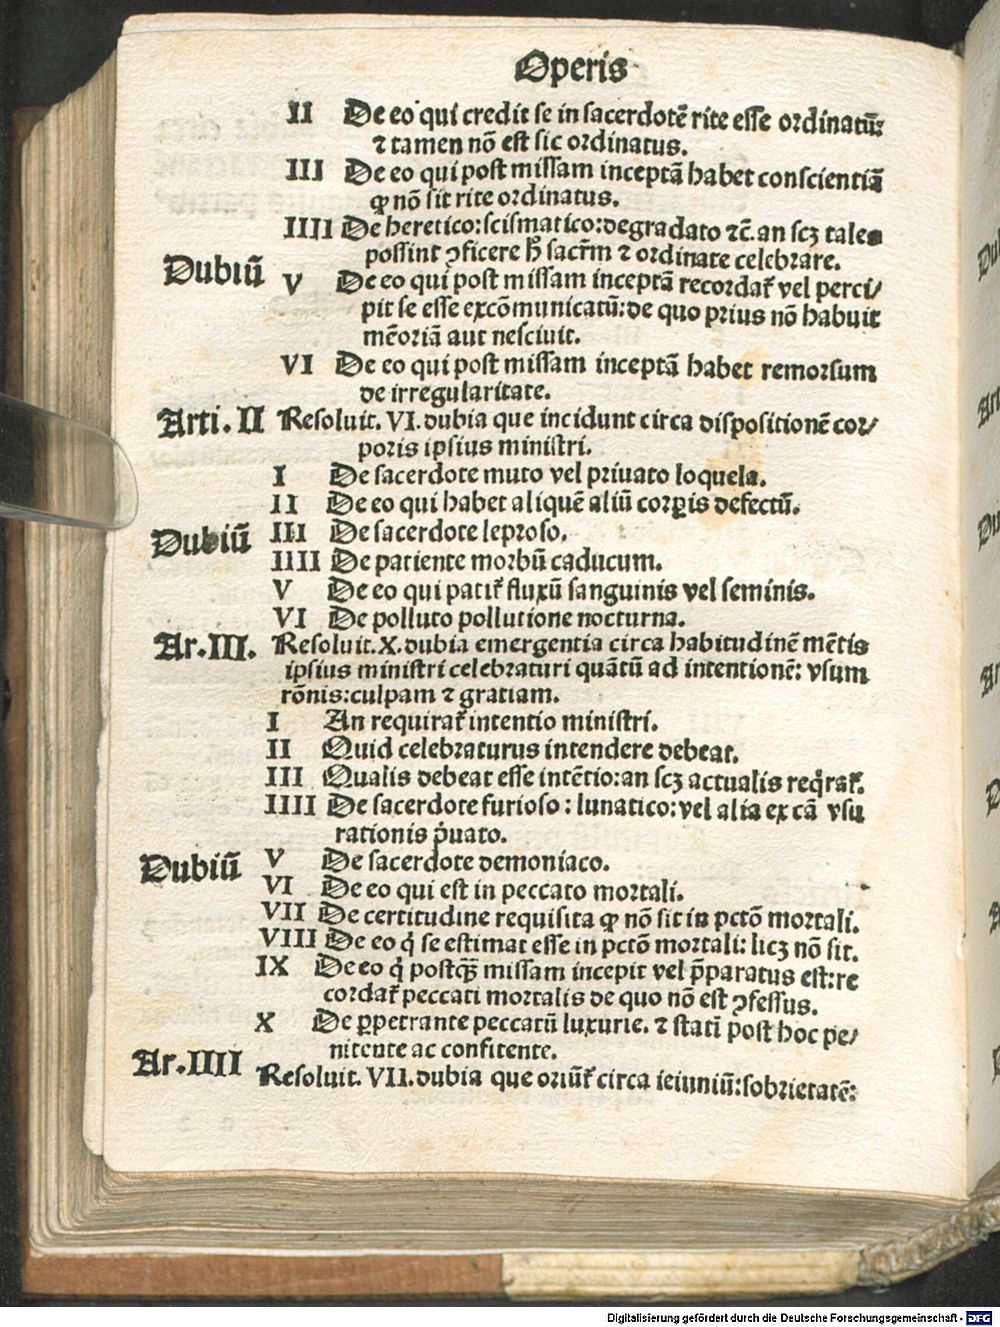 Operis
II De eo qui credit se in sacerdotē rite esse ordinatū:
⁊ tamen nō est sic ordinatus.
III De eo qui post missam inceptā habet conscientiā
ꝙ nō sit rite ordinatus.
IIII De heretico: scismatico: degradato ⁊c̄. an scꝫ tales
possint ꝯficere h̄ sacrm̄ ⁊ ordinate celebrare.
Dubiū V De eo qui post missam inceptā recordat᷑ vel perci/
pit se esse excōmunicatū: de quo prius nō habuit
mēoriā aut nesciuit.
VI De eo qui post missam inceptā habet remorsum
de irregularitate.
Arti. II Resoluit. VI. dubia que incidunt circa dispositionē cor/
poris ipsius ministri.
I De sacerdote muto vel priuato loquela.
II De eo qui habet aliquē aliū corꝑis defectū.
Dubiū III De sacerdote leproso.
IIII De patiente morbū caducum.
V De eo qui patit᷑ fluxū sanguinis vel seminis.
VI De polluto pollutione nocturna.
Ar. III. Resoluit. X. dubia emergentia circa habitudinē mētis
ipsius ministri celebraturi quātū ad intentionē: vsum
rōnis: culpam ⁊ gratiam.
I An requirat᷑ intentio ministri.
II Quid celebraturus intendere debeat.
III Qualis debeat esse intētio: an scꝫ actualis reqͥrat᷑.
IIII De sacerdote furioso: lunatico: vel alia ex cā vsu
rationis pͥuato.
Dubiū V De sacerdote demoniaco.
VI De eo qui est in peccato mortali.
VII De certitudine requisita ꝙ nō sit in pctō mortali.
VIII De eo qͥ se estimat esse in pctō mortali: licꝫ nō sit.
IX De eo qͥ postqꝫ̄ missam incepit vel p̄paratus est: re
cordat᷑ peccati mortalis de quo nō est ꝯfessus.
X De ꝑpetrante peccatū luxurie. ⁊ statī post hoc pe/
nitente ac confitente.
Ar. IIII Resoluit. VII. dubia que oriūt᷑ circa ieiuniū: sobrietatē:
Digitalisierung gefördert durch die Deutsche Forschungsgemeinschaft - DFG